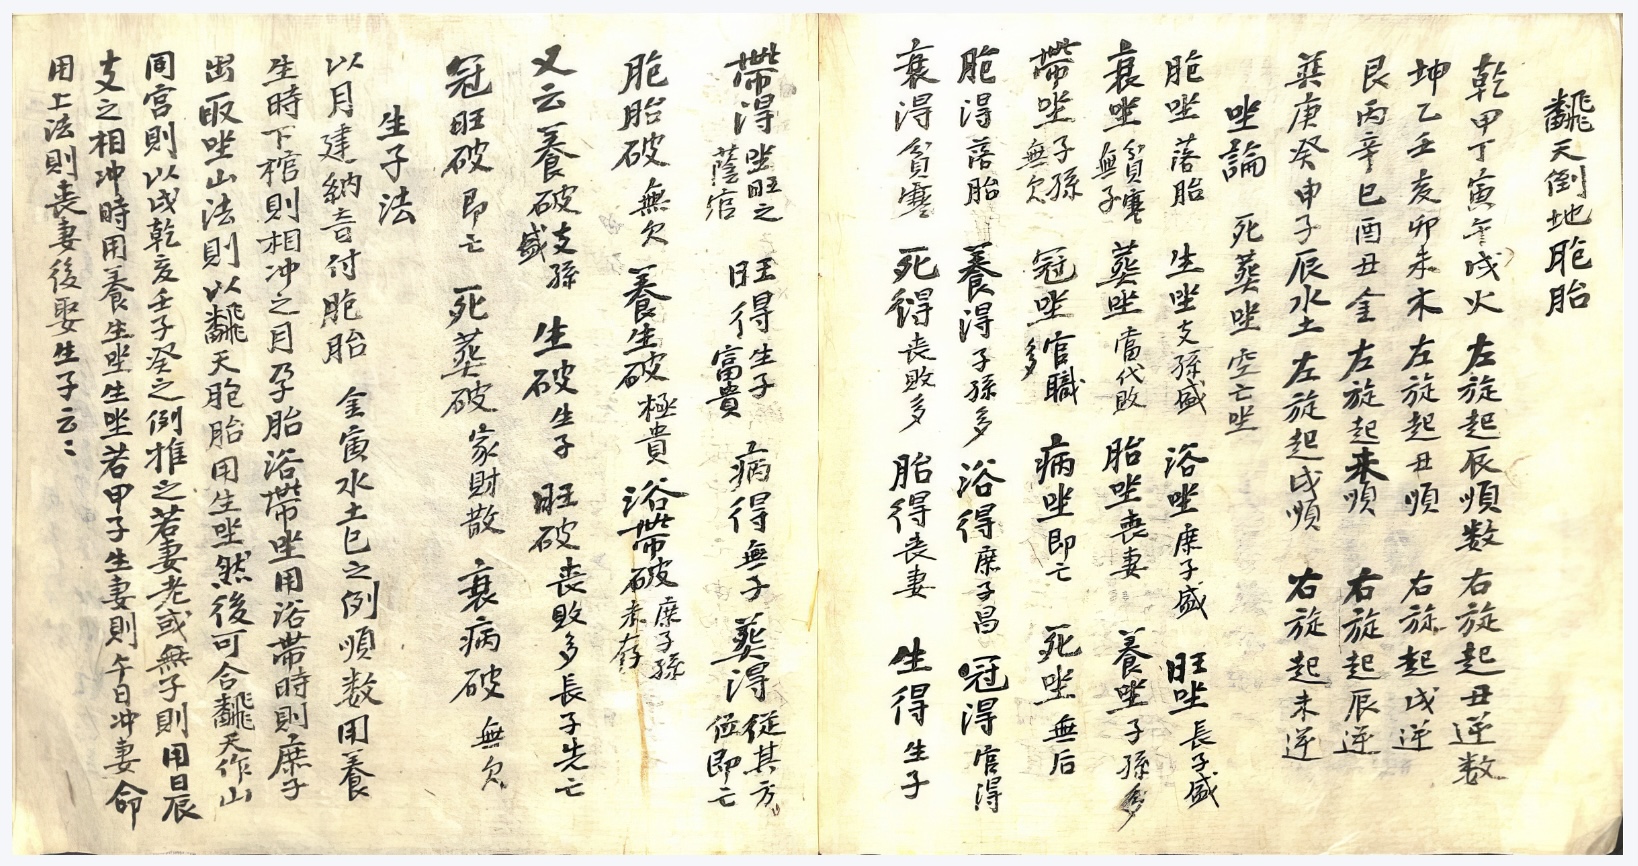 飜天倒地胞胎
乾甲丁寅午戌火 左旋起辰順数 右旋起丑逆数
坤乙壬亥卯未木 左旋起丑順 右旋起戌逆
艮丙辛巳酉丑金 左旋起未順 右旋起辰逆
巽庚癸申子辰水土 左旋起戌順 右旋起未逆
坐論 死葬坐 空亡坐
胞坐落胎 生坐支孫盛 浴坐庶子盛 旺坐長子盛
衰坐貧寒無子 葬坐當代敗 胎坐丧妻 養坐子孫多
帶坐子孫無欠 冠坐官職多 病坐即亡 死坐無后
胞得落胎 養得子孫多 浴得庶子昌 冠得官得
衰得貧寒 死得丧敗多 胎得丧妻 生得生子
帶得坐旺之蔭宿 旺得生子富貴 病得無子 葬得從其方位即亡
胞胎破無欠 養生破極貴 浴帶破庶子孫未存
又云養破支孫盛 生破生子 旺破丧敗多長子先亡
冠旺破即亡 死葬破家財散 衰病破無欠
生子法
以月建納音付胞胎 金寅水土巳之例順数用養
生時下棺則相冲之月孕胎浴帶坐用浴帶時則庶子
出取坐山法則以飜天胞胎用生坐然後可合飜天作山
同宮則以戌乾亥壬子癸之例推之若妻老或無子則用日辰
支之相冲時用養生坐生坐若甲子生妻則午日冲妻命
用上法則丧妻後娶生子云〻